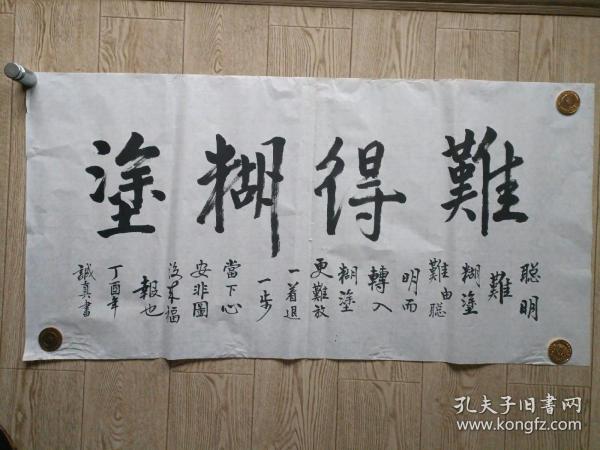 難得糊塗
聡明
難
糊塗
難由聡
明而
轉入
糊塗
更難放
一着退
一步
當下心
安非圖
後來福
報也
丁酉年
誠真書
孔夫子旧書网
www.kongfz.com